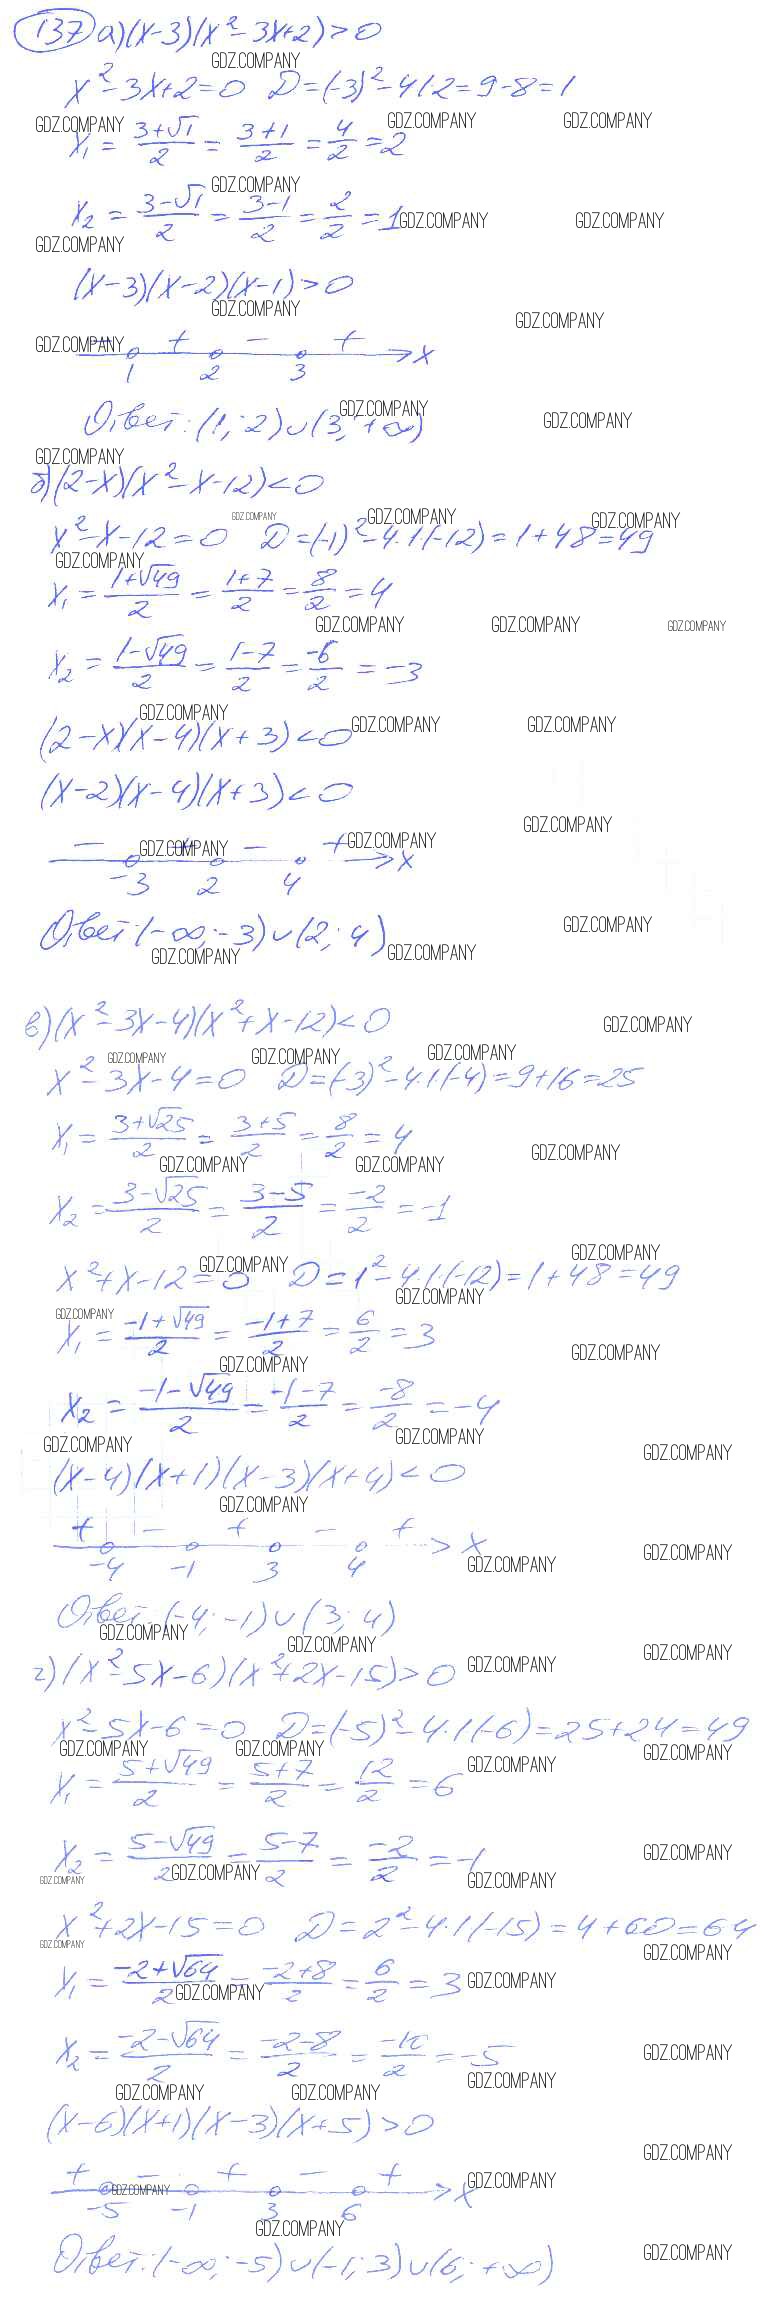 137 а) (x-3)(x²-3x+2)>0
GDZ.COMPANY
x²-3x+2=0 D=(-3)²-4·1·2=9-8=1
GDZ.COMPANY GDZ.COMPANY GDZ.COMPANY
x₁ = (3+√1)/2 = (3+1)/2 = 4/2 = 2
GDZ.COMPANY
x₂ = (3-√1)/2 = (3-1)/2 = 2/2 = 1
GDZ.COMPANY GDZ.COMPANY
GDZ.COMPANY
(x-3)(x-2)(x-1)>0
GDZ.COMPANY
GDZ.COMPANY
GDZ.COMPANY
- + - + x
1 2 3
GDZ.COMPANY
Ответ: (1; 2)∪(3; +∞)
GDZ.COMPANY
GDZ.COMPANY
б) (2-x)(x²-x-12)<0
GDZ.COMPANY GDZ.COMPANY GDZ.COMPANY
x²-x-12=0 D=(-1)²-4·1·(-12)=1+48=49
GDZ.COMPANY
x₁ = (1+√49)/2 = (1+7)/2 = 8/2 = 4
GDZ.COMPANY GDZ.COMPANY GDZ.COMPANY
x₂ = (1-√49)/2 = (1-7)/2 = -6/2 = -3
GDZ.COMPANY
GDZ.COMPANY GDZ.COMPANY
(2-x)(x-4)(x+3)<0
(x-2)(x-4)(x+3)<0
GDZ.COMPANY
GDZ.COMPANY GDZ.COMPANY
- + - + x
-3 2 4
GDZ.COMPANY
Ответ: (-∞; -3)∪(2; 4)
GDZ.COMPANY GDZ.COMPANY
в) (x²-3x-4)(x²+x-12)<0
GDZ.COMPANY
GDZ.COMPANY GDZ.COMPANY GDZ.COMPANY
x²-3x-4=0 D=(-3)²-4·1·(-4)=9+16=25
x₁ = (3+√25)/2 = (3+5)/2 = 8/2 = 4
GDZ.COMPANY
GDZ.COMPANY GDZ.COMPANY
x₂ = (3-√25)/2 = (3-5)/2 = -2/2 = -1
GDZ.COMPANY GDZ.COMPANY
x²+x-12=0 D=1²-4·1·(-12)=1+48=49
GDZ.COMPANY
GDZ.COMPANY
x₁ = (-1+√49)/2 = (-1+7)/2 = 6/2 = 3
GDZ.COMPANY GDZ.COMPANY
x₂ = (-1-√49)/2 = (-1-7)/2 = -8/2 = -4
GDZ.COMPANY GDZ.COMPANY GDZ.COMPANY
(x-4)(x+1)(x-3)(x+4)<0
GDZ.COMPANY
+ - + - + x
-4 -1 3 4
GDZ.COMPANY GDZ.COMPANY
Ответ: (-4; -1)∪(3; 4)
GDZ.COMPANY GDZ.COMPANY
GDZ.COMPANY GDZ.COMPANY
г) (x²-5x-6)(x²+2x-15)>0
x²-5x-6=0 D=(-5)²-4·1·(-6)=25+24=49
GDZ.COMPANY GDZ.COMPANY GDZ.COMPANY GDZ.COMPANY
x₁ = (5+√49)/2 = (5+7)/2 = 12/2 = 6
GDZ.COMPANY
x₂ = (5-√49)/2 = (5-7)/2 = -2/2 = -1
GDZ.COMPANY GDZ.COMPANY GDZ.COMPANY
x²+2x-15=0 D=2²-4·1·(-15)=4+60=64
GDZ.COMPANY GDZ.COMPANY
x₁ = (-2+√64)/2 = (-2+8)/2 = 6/2 = 3
GDZ.COMPANY GDZ.COMPANY
x₂ = (-2-√64)/2 = (-2-8)/2 = -10/2 = -5
GDZ.COMPANY
GDZ.COMPANY
GDZ.COMPANY GDZ.COMPANY
(x-6)(x+1)(x-3)(x+5)>0
GDZ.COMPANY
+ - + - + x
GDZ.COMPANY GDZ.COMPANY
-5 -1 3 6
GDZ.COMPANY
Ответ: (-∞; -5)∪(-1; 3)∪(6; +∞)
GDZ.COMPANY